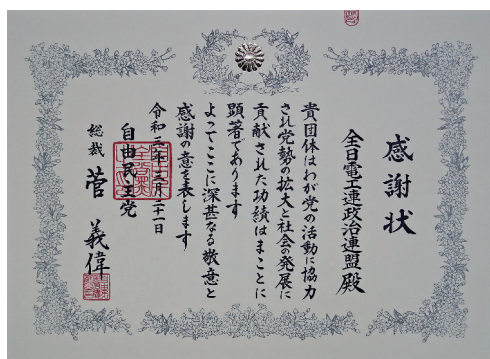 感謝状
全日電工連政治連盟殿
貴団体はわが党の活動に協力
され党勢の拡大と社会の発展に
貢献された功績はまことに
顕著であります
よってここに深甚なる敬意と
感謝の意を表します
令和三年三月二十一日
自由民主党
総裁 菅 義偉